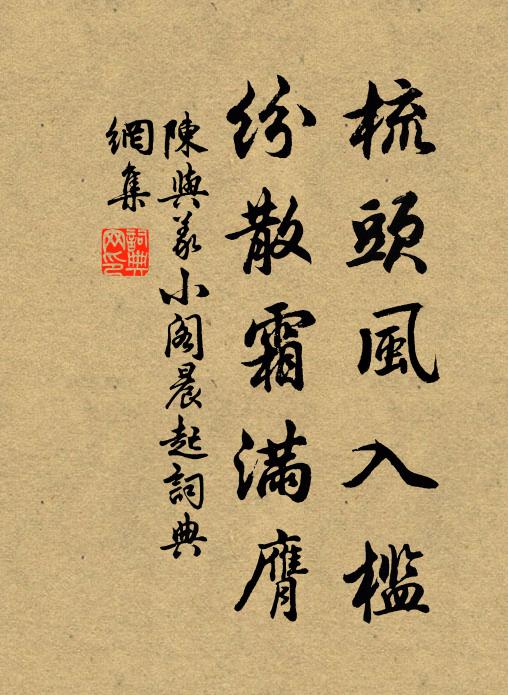 梳頭風入檻
紛散霜滿膺
陳與義小閣晨起詞典
網集
詞典
网印